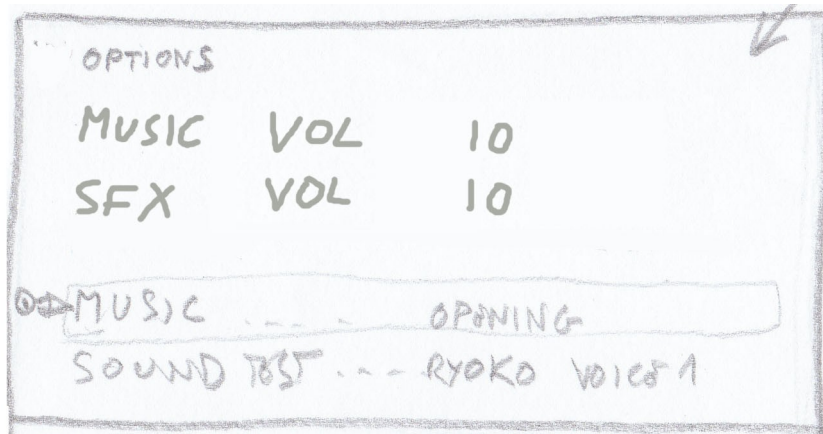 OPTIONS
MUSIC VOL 10
SFX VOL 10
MUSIC ..... OPENING
SOUND TEST .... RYOKO VOICE 1